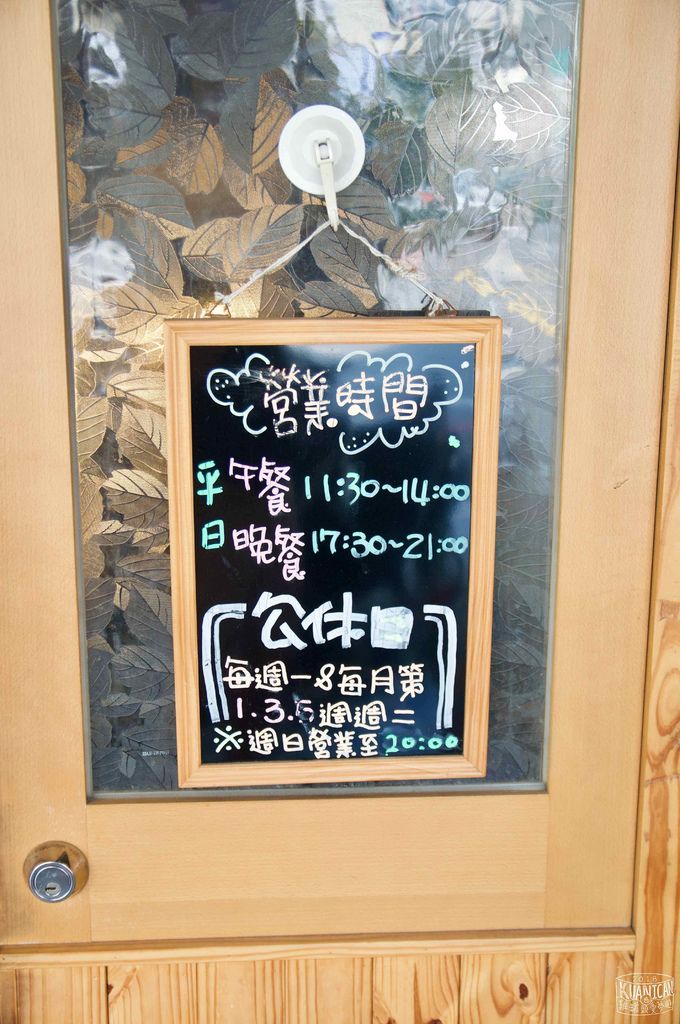 營業時間
平日 午餐 11:30~14:00
晚餐 17:30~21:00
公休日
每週一&每月第
1.3.5週週二
※週日營業至20:00
2018
KUANTCAN